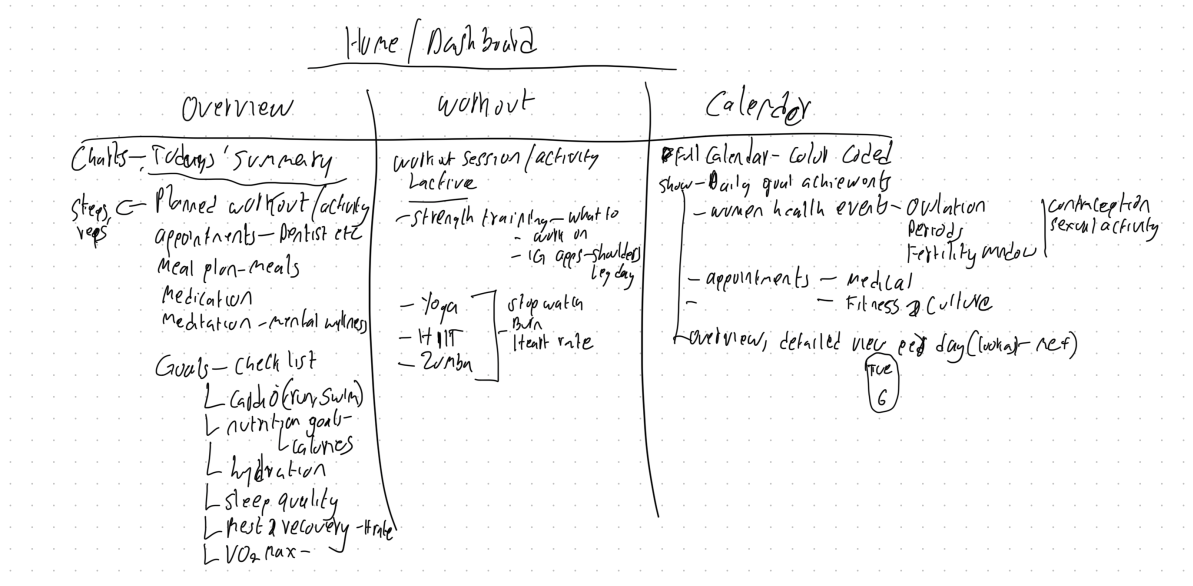 Home / Dashboard
Overview
Charts - Todays' Summary
Steps, reps
Planned workout/activity
appointments - Dentist etc
Meal plan - meals
Medication
Meditation - mental wellness
Goals - check list
cardio (run, swim)
nutrition goals -
calories
hydration
sleep quality
Rest & recovery - H rate
VO2 max -
workout
workout session/activity
active
- strength training - what to
- work on
- IG apps - shoulders
leg day
- Yoga
- HIIT
- Zumba
stop watch
- Burn
Heart rate
Calender
Full Calendar - Color Coded
show - Daily goal
- women health events - Ovulation
Periods
Fertility window
contraception
sexual activity
- appointments - medical
- - Fitness & Culture
overview, detailed view per day (look at - ref)
Tue
6